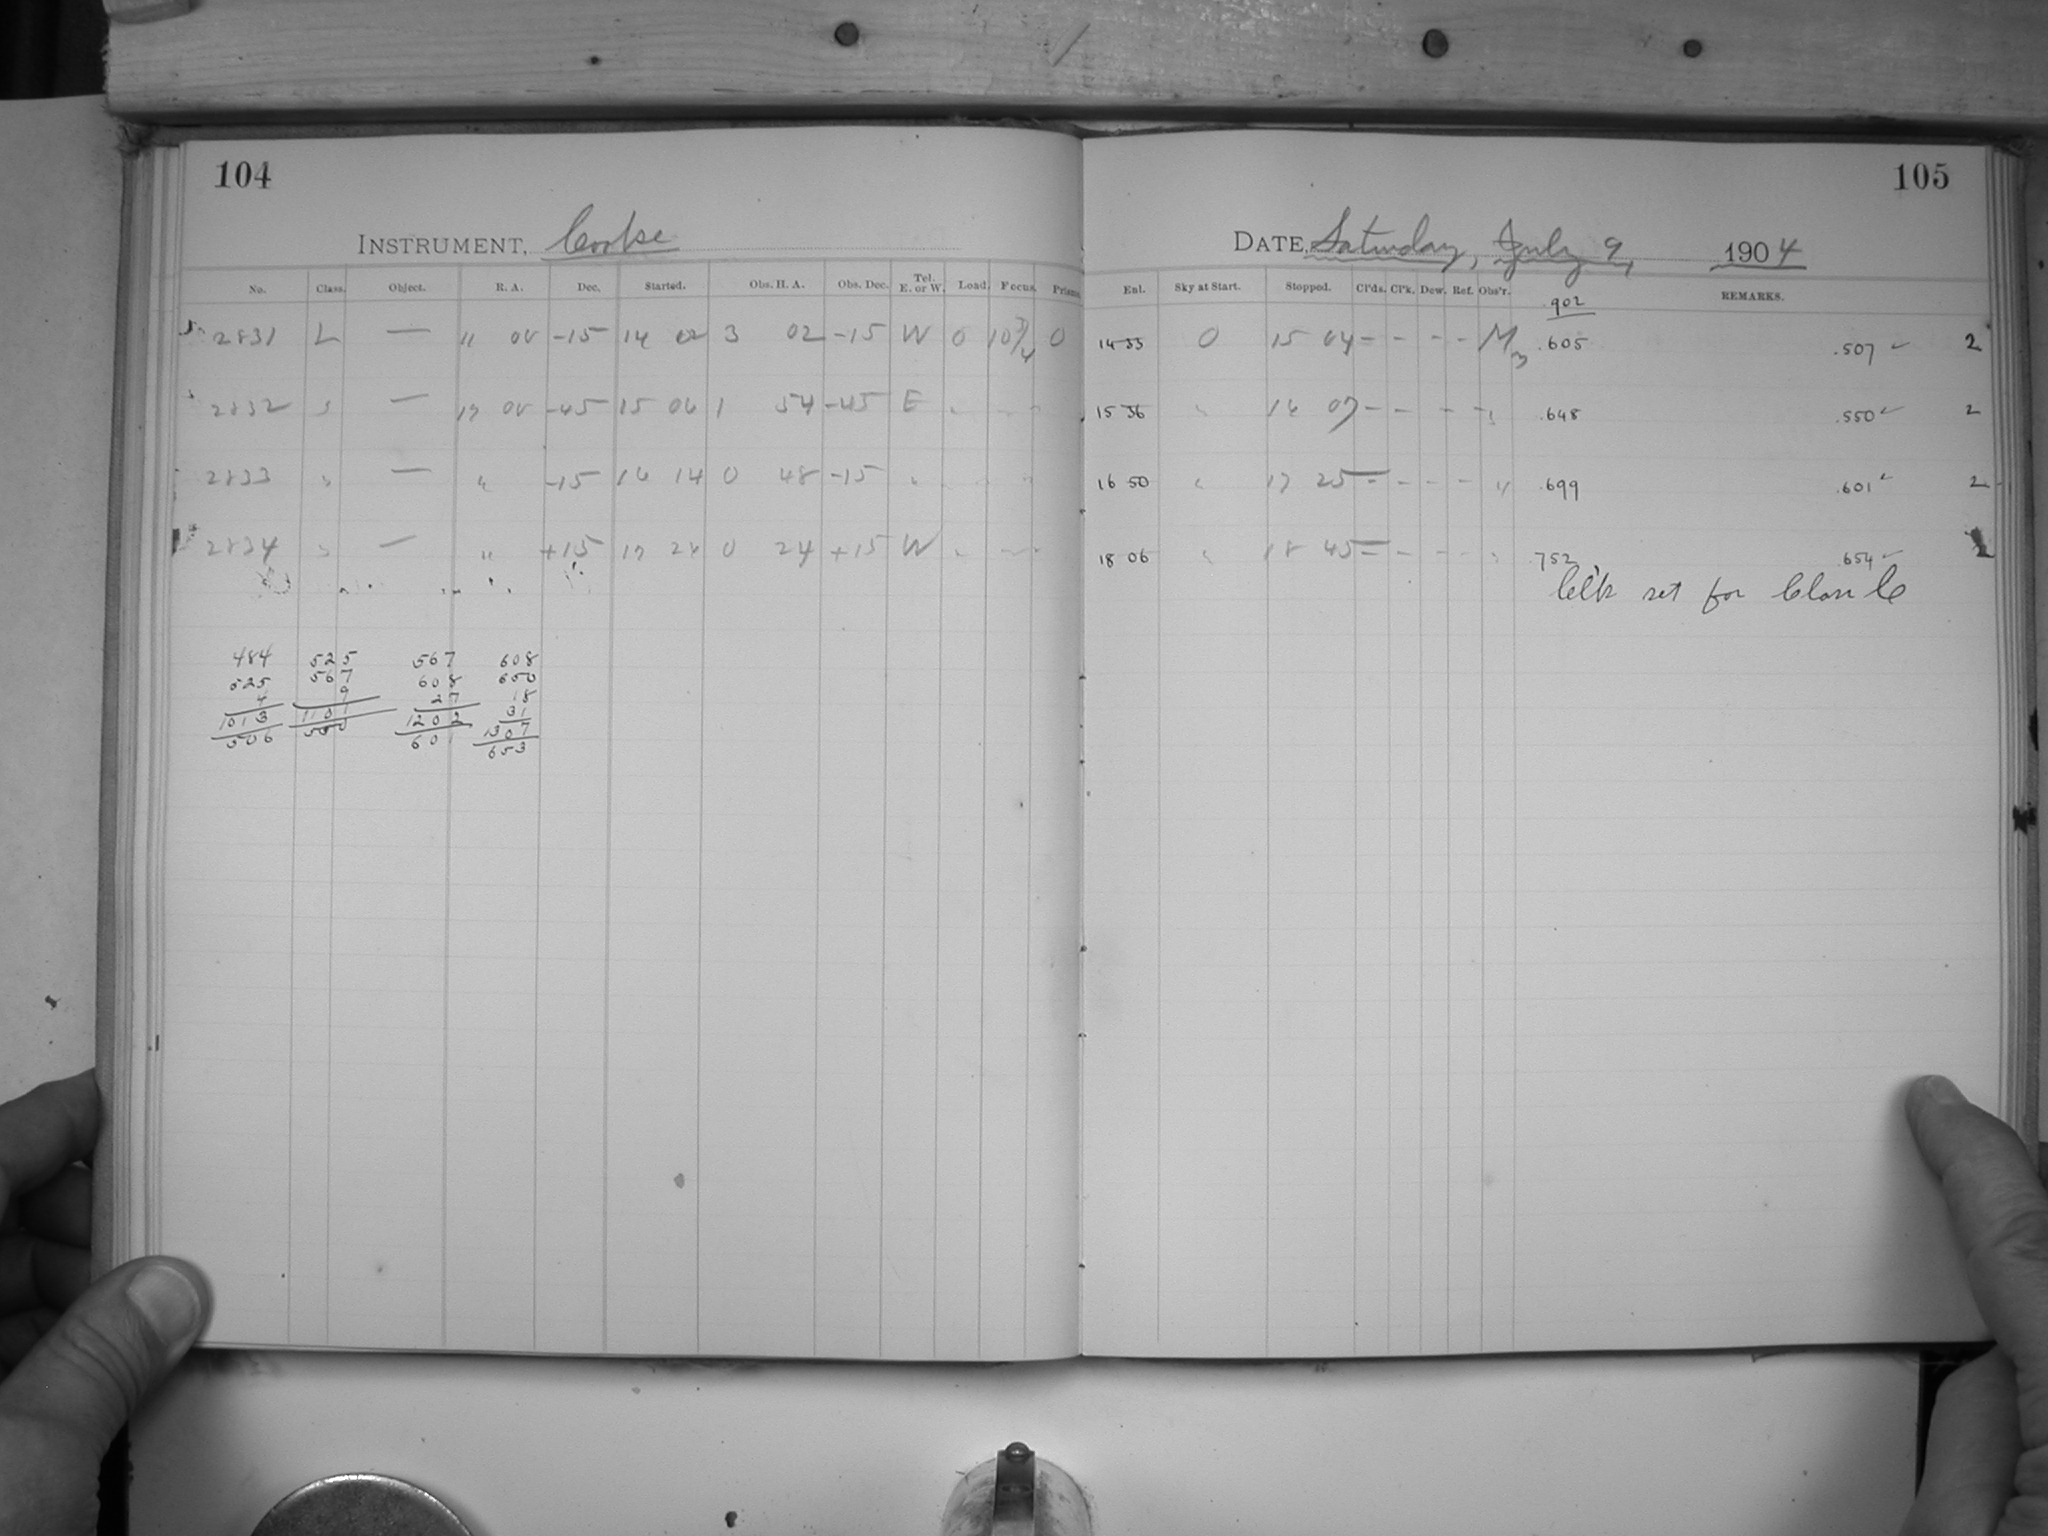 104
105
INSTRUMENT, Cooke
DATE, Saturday, July 9, 1904
No. Class. Object. R. A. Dec. Started. Obs. H. A. Obs. Dec. Tel. E. or W. Load. Focus. Prisms.
Enl. Sky at Start. Stopped. Cl'ds. Cl'k. Dew. Ref. Obs'r. REMARKS.
.902
2831 L — 11 00 -15 14 02 3 02 -15 W 0 10 3/4 0 14 33 0 15 04 - - - - M3 .605 .507 ✓ 2
2832 " — 17 00 -45 15 06 1 54 -45 E " " " 15 36 " 16 07 - - - - " .648 .550 ✓ 2
2833 " — " -15 16 14 0 48 -15 " " " " 16 50 " 17 25 - - - - " .699 .601 ✓ 2
2834 " — " +15 17 28 0 24 +15 W " " " 18 06 " 18 45 - - - - " .752 .654 ✓ 2
set for
484 525 567 608
525 567 608 650
4 9 27 18
31
1013 1101 1202 1307
506 550 601 653